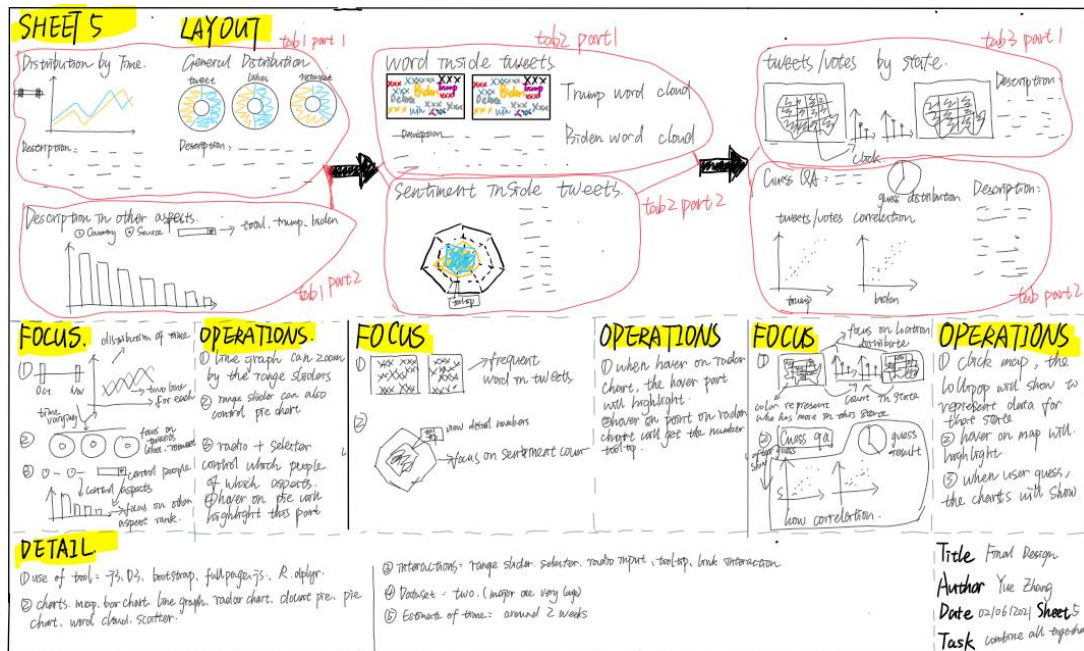 SHEET 5
LAYOUT
tab1 part 1
Distribution by Time.
General Distribution
tweet
likes
retweet
Description:
Description:
Description in other aspects.
Country
Source
total, trump, biden
tab1 part2
tab2 part1
word inside tweets
XXX
Biden
Trump
Debate
with
XXX
Biden
Trump
Debate
with
Trump word cloud
Biden word cloud
Description
sentiment inside tweets.
tooltop
tab2 part2
tab3 part 1
tweets/votes by state.
Description:
click
Guess QA:
guess distribution
Description:
tweets/votes correlation
trump
biden
tab part2
FOCUS.
① distribution of time
Oct
Nov
two line
for each
time
varying
② focus on
tweets
likes, retweet
③ control people
control
aspects
focus on other
aspect rank.
OPERATIONS.
① line graph can zoom
by the range sliders
② range slider can also
control pie chart
③ radio + selector
control which people
of which aspects.
④ hover on pie will
highlight this part
FOCUS
① frequent
word in tweets
② view detail numbers
focus on sentement count
OPERATIONS
① when hover on radar
chart, the hover part
will highlight.
② hover on point on radar
chart will get the number
tooltop.
FOCUS
① focus on location
distribute
color represent
who has more in this state
count in state
② Guess q&a
guess
result
after guess
show
how correlation.
OPERATIONS
① click map, the
lollipop will show to
represent data for
that state
② hover on map will
highlight
③ when user guess,
the charts will show
DETAIL.
① use of tool: D3, bootstrap, fullpage.js, R, dplyr.
② charts: map, bar chart, line graph, radar chart, pie
chart, word cloud, scatter.
③ interactions: range slider, selector, radio input, tooltop, link interaction
④ Dataset: two. (major one very large)
⑤ Estimate of time: around 2 weeks
Title Final Design
Author Yue Zhang
Date 02/06/2021 Sheet 5
Task combine all together